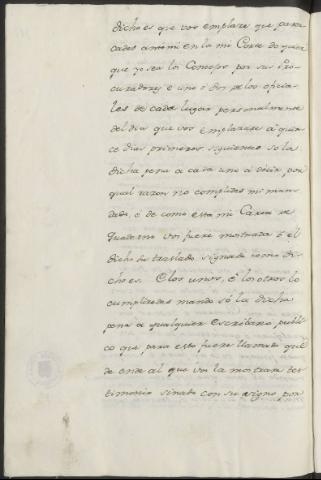 dicho es que vos emplaze que pares
cades ante mi en la mi Corte do quier
que yo sea los Concejos por sus Pro-
curadores e uno ó dos de los oficia-
les de cada lugar personalmente
del dia que vos emplazare á quin-
ce dias primeros siguientes so la
dicha pena a cada uno á decir por
qual razon no complides mi man-
dado, é de como esta mi Carta de
Quaderno vos fuere mostrada é el
dicho su traslado signado como di-
cho es. E los unos, é los otros lo
cumplirades mando só la dicha
pena a qualquier Escribano publi-
co que para esto fuere llamado que
de ende al que vos la mostrare tes
timonio sinado con su signo por